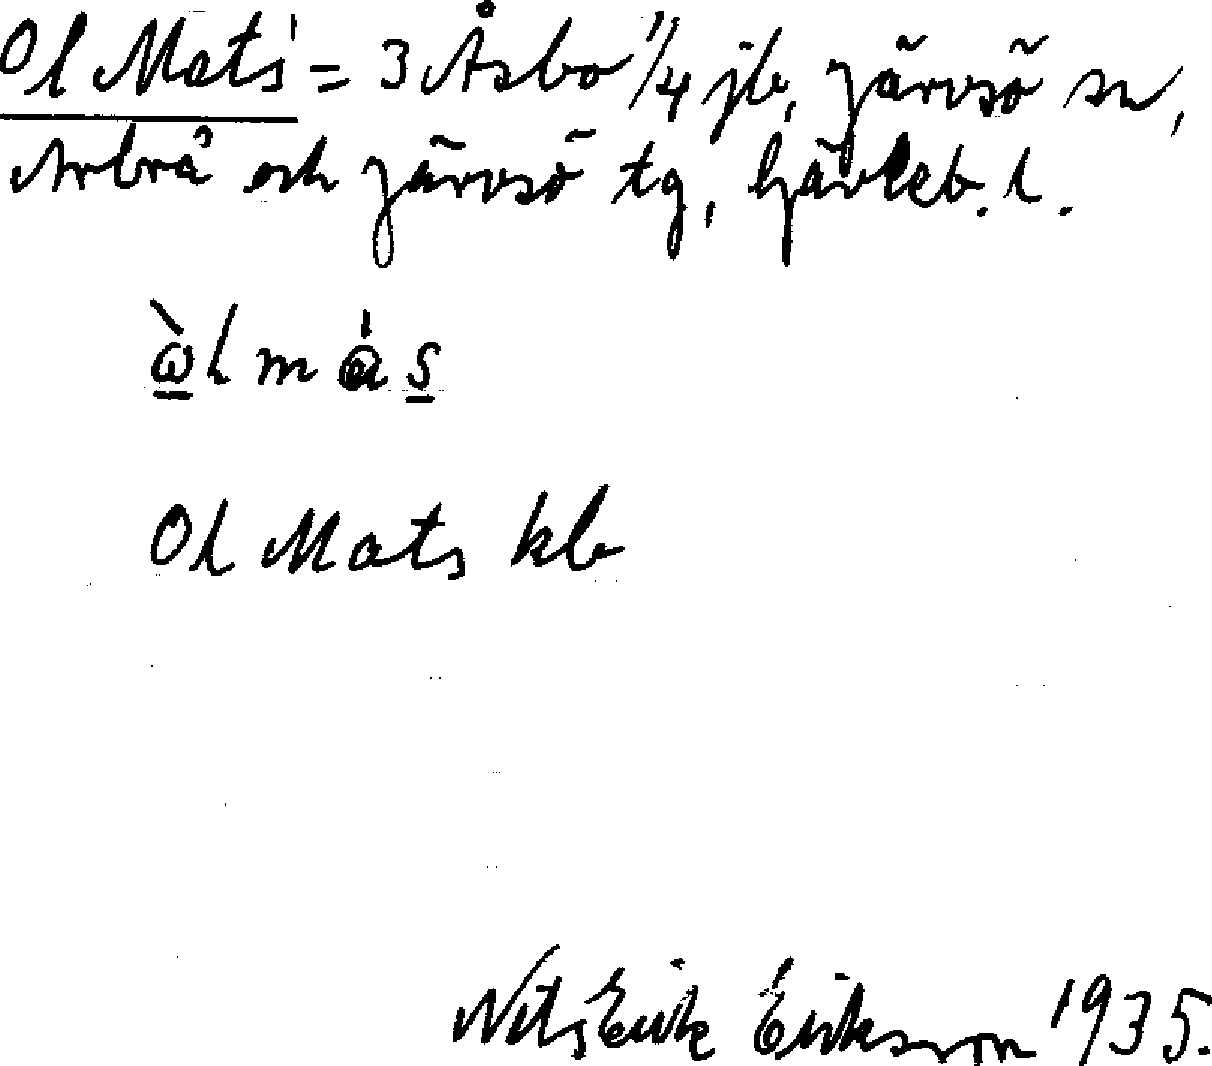 Ol Mats' = 3 Åsbo 1/4 jb, Järvsö sn,
Arbrå och Järvsö tg, Gävleb. l.
ὼl m ά s
Ol Mats kb
Nils Erik Eriksson 1935.